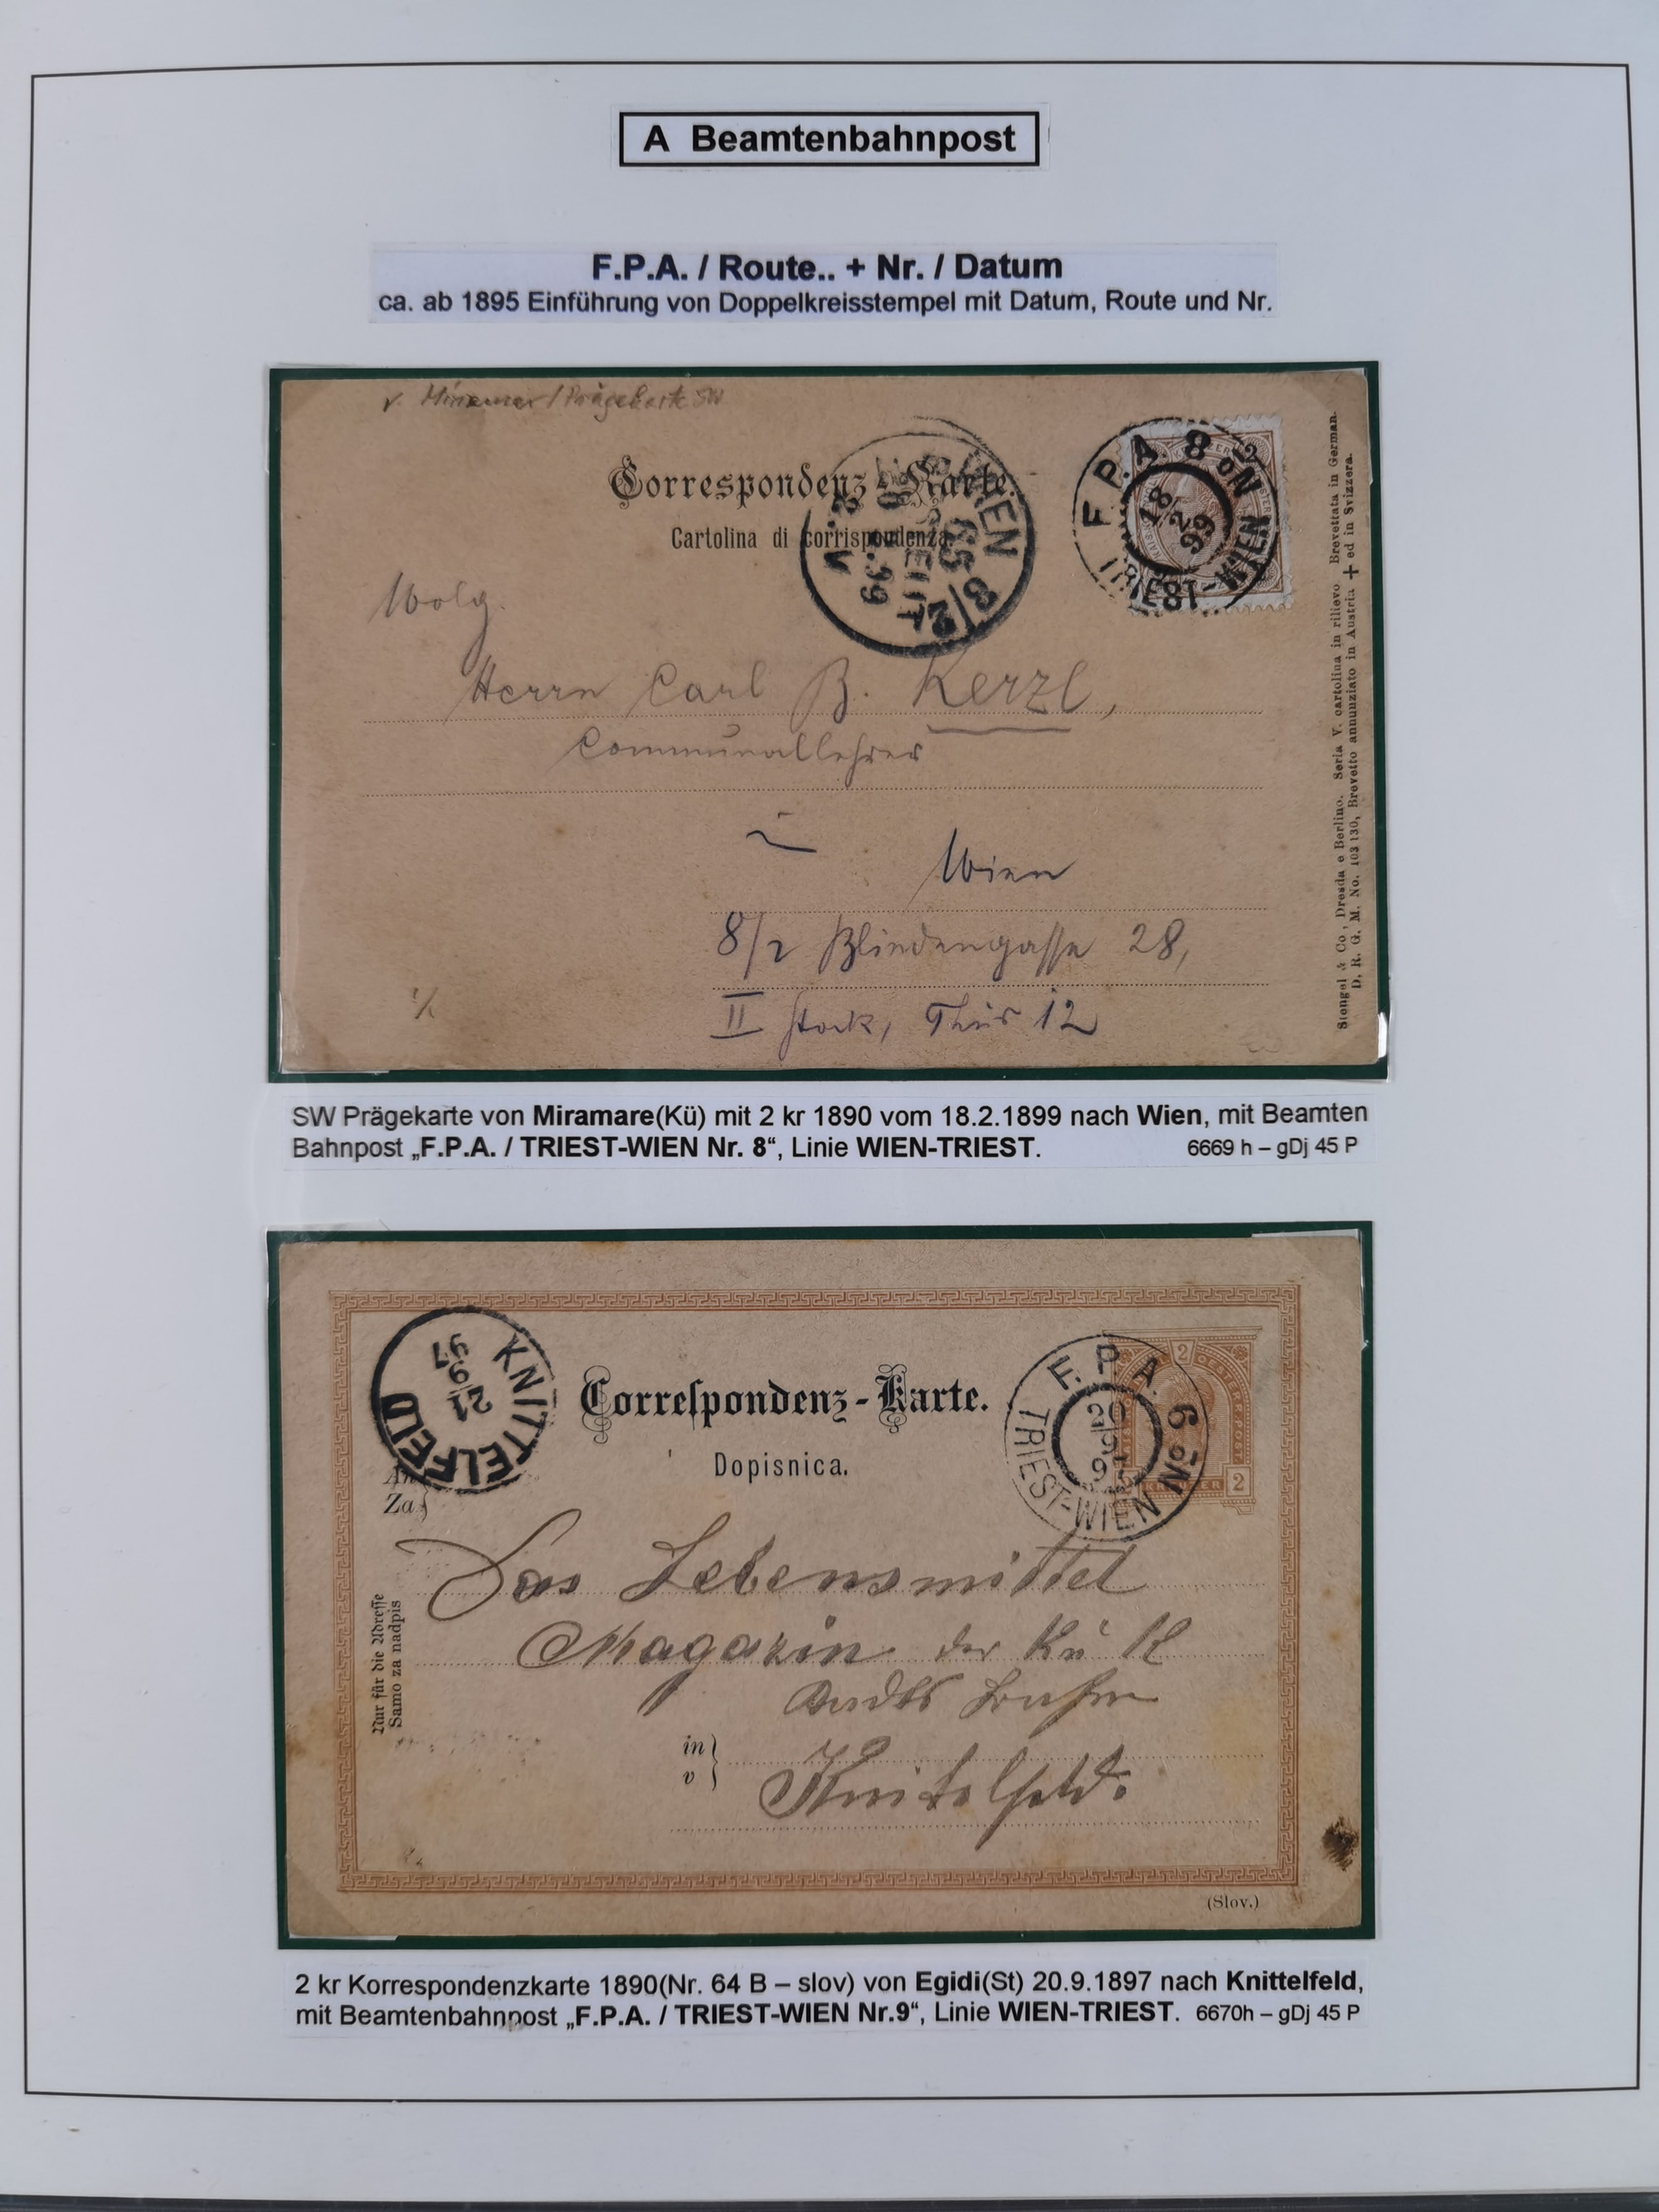 A Beamtenbahnpost
F.P.A. / Route.. + Nr. / Datum
ca. ab 1895 Einführung von Doppelkreisstempel mit Datum, Route und Nr.
v. Miramar / Prägekarte SW
Correspondenz-Karte.
Cartolina di corrispondenza.
WIEN 8/2
F.P.A. No 8
18/2 99
TRIEST-WIEN
Wolg.
Herrn Carl B. Kerzl,
Communallehrer
in
Wien
8/2 Blindengasse 28,
II Stock, Thür 12
Stengel & Co., Dresda e Berlino. Seria V. cartolina in rilievo Brevettata in German.
D. R. G. M. No. 103 130, Brevetto annunziato in Austria + ed in Svizzera.
SW Prägekarte von Miramare(Kü) mit 2 kr 1890 vom 18.2.1899 nach Wien, mit Beamten
Bahnpost „F.P.A. / TRIEST-WIEN Nr. 8“, Linie WIEN-TRIEST. 6669 h – gDj 45 P
KNITTELFELD
21/9 97
Correspondenz-Karte.
Dopisnica.
F.P.A. No 9
20/9
TRIEST-WIEN
An
Za
Das Lebensmittel
Magazin der Kü K
Knittelfeld.
in
v
Nur für die Adresse
Samo za nadpis
(Slov.)
2 kr Korrespondenzkarte 1890(Nr. 64 B – slov) von Egidi(St) 20.9.1897 nach Knittelfeld,
mit Beamtenbahnpost „F.P.A. / TRIEST-WIEN Nr.9“, Linie WIEN-TRIEST. 6670h – gDj 45 P